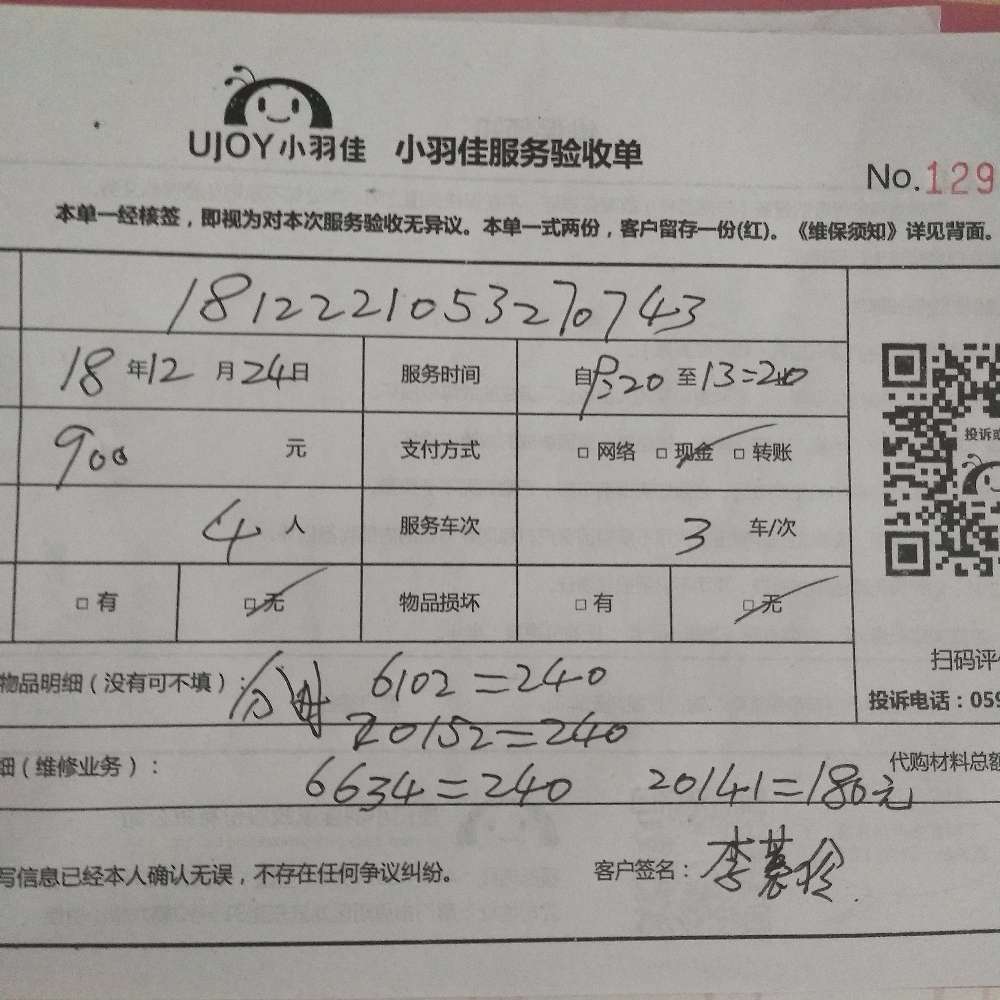 UJOY小羽佳 小羽佳服务验收单
No.129
本单一经核签，即视为对本次服务验收无异议。本单一式两份，客户留存一份(红)。《维保须知》详见背面。
1812221053270743
18年12月24日 服务时间 自9:20至13:20
900元 支付方式 □网络 □现金 □转账
投诉或
4人 服务车次 3车/次
□有 □无 物品损坏 □有 □无
扫码评价
物品明细（没有可不填）： 6102=240
投诉电话：059
20152=240
细（维修业务）： 代购材料总额
6634=240 20141=180元
写信息已经本人确认无误，不存在任何争议纠纷。 客户签名：李慕玲